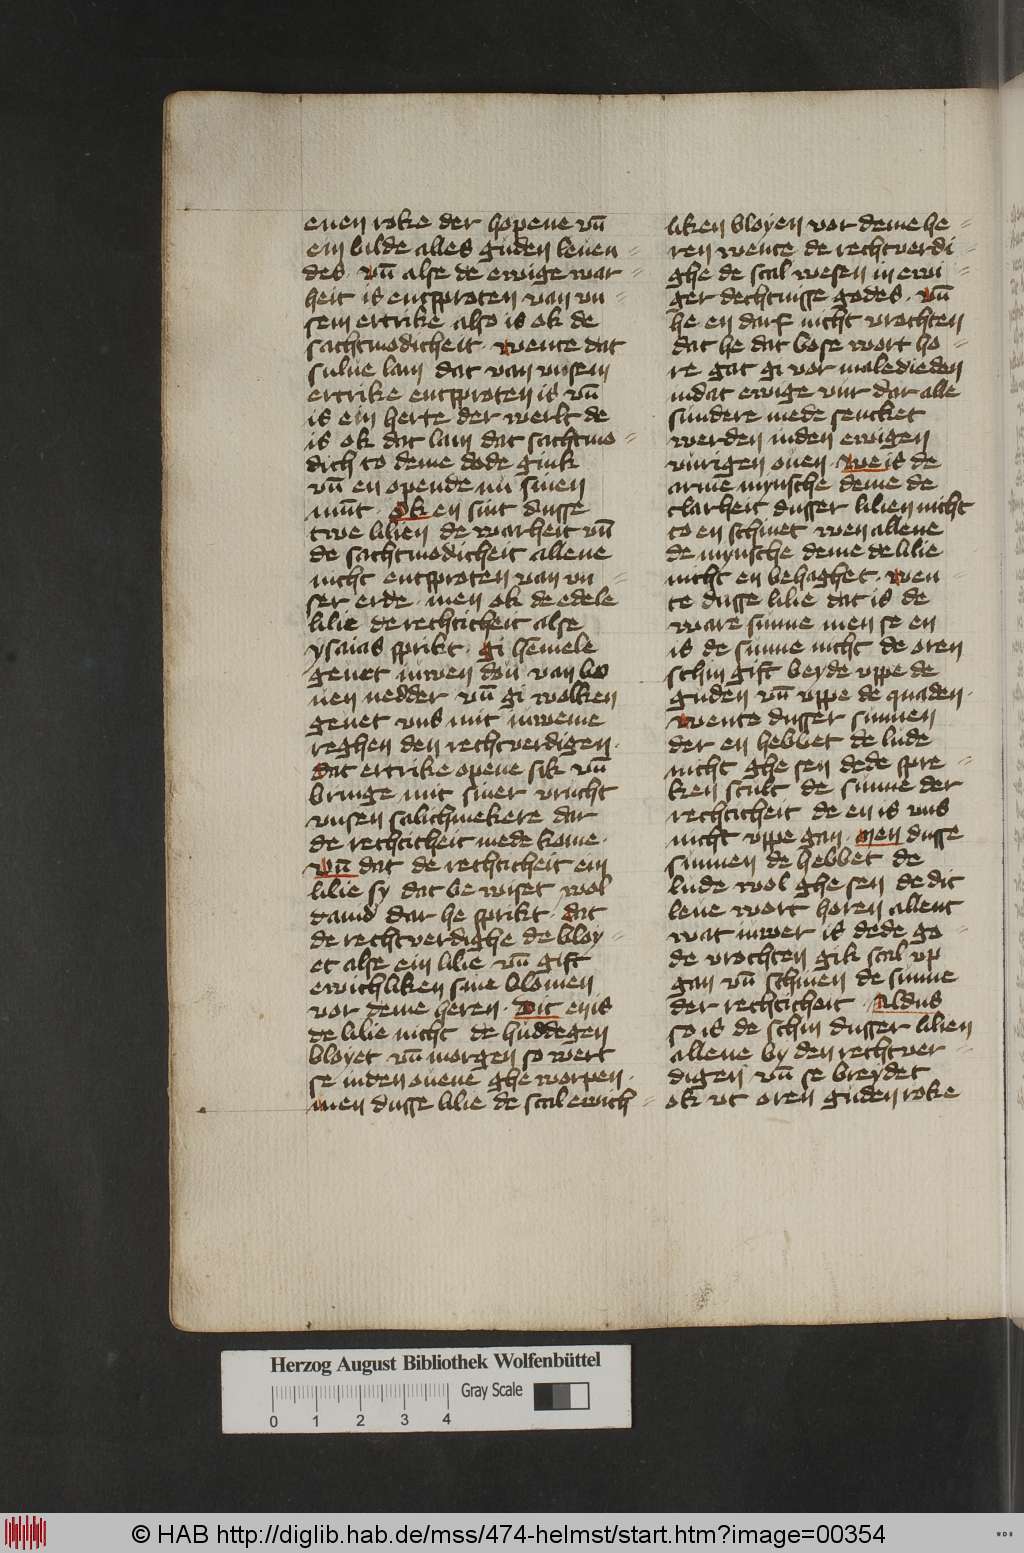 enen roke der hopene vn̄
ein bilde alles guden leuen
des vn̄ alse de ewige war
heit is entsproten van vn
sem ertrike also is ok de
sachtmodicheit · wente dat
sulue lam dat van vnsem
ertrike entsproten is vn̄
is ein herte der werlt de
is ok dat lam dat sachtmo
dich to deme dode gink
vn̄ en opende nu sinen
mūt · Ok en sint dusse
twe lilien de warheit vn̄
de sachtmodicheit allene
nicht entsproten van vn
ser erde · men ok de edele
lilie de rechticheit alse
ysaias sprikt · gi hemele
geuet iuwen dou van bo
uen nedder vn̄ gi wolken
geuet vns mit iuweme
reghen den rechtverdigen ·
dat ertrike opene sik vn̄
bringe mit siner vrucht
vnsen salichmekere dar
de rechticheit mede kome ·
Vn̄ dat de rechticheit ein
lilie sy dat be wiset wol
dauid dar he sprikt · dat
de rechtverdighe de bloy
et alse ein lilie vn̄ gift
ewichliken sine blomen
vor deme heren · Dit en is
de lilie nicht de huddegen
bloyet vn̄ morgen so wert
se in den ouene ghe worpen ·
men dusse lilie de scal ewich
liken bloyen vor deme he
ren wente de rechtverdi
ghe de scal wesen in ewi
ger dechtnisse godes · Vn̄
he en darf nicht vrochten
dat he dat bose wort ho
re gat gi vor maledieden
in dat ewige vur dar alle
sundere mede sencket
werden in den ewigen
vurigen ouen · We is de
arme mynsche deme de
clarheit dusser lilien nicht
to en schinet wen allene
de mynsche deme de lilie
nicht en behaghet · wen
te dusse lilie dat is de
ware sunne men se en
is de sunne nicht de oren
schin gift beyde vppe de
guden vn̄ vppe de quaden ·
wente dusser sunnen
der en hebbet de lude
nicht ghe sen dede spre
ken scult de sunne der
rechticheit de en is vns
nicht vppe gan · Men dusse
sunnen de hebbet de
lude wol ghe sen de dit
leue wort horen allent
wat iuwer is dede go
de vrochten gik scal vp
gan vn̄ schinen de sunne
der rechticheit · Aldus
so is de schin dusser lilien
allene by den rechtver
digen vn̄ se breydet
ok vt oren guden roke
Herzog August Bibliothek Wolfenbüttel
Gray Scale
0 1 2 3 4
© HAB http://diglib.hab.de/mss/474-helmst/start.htm?image=00354